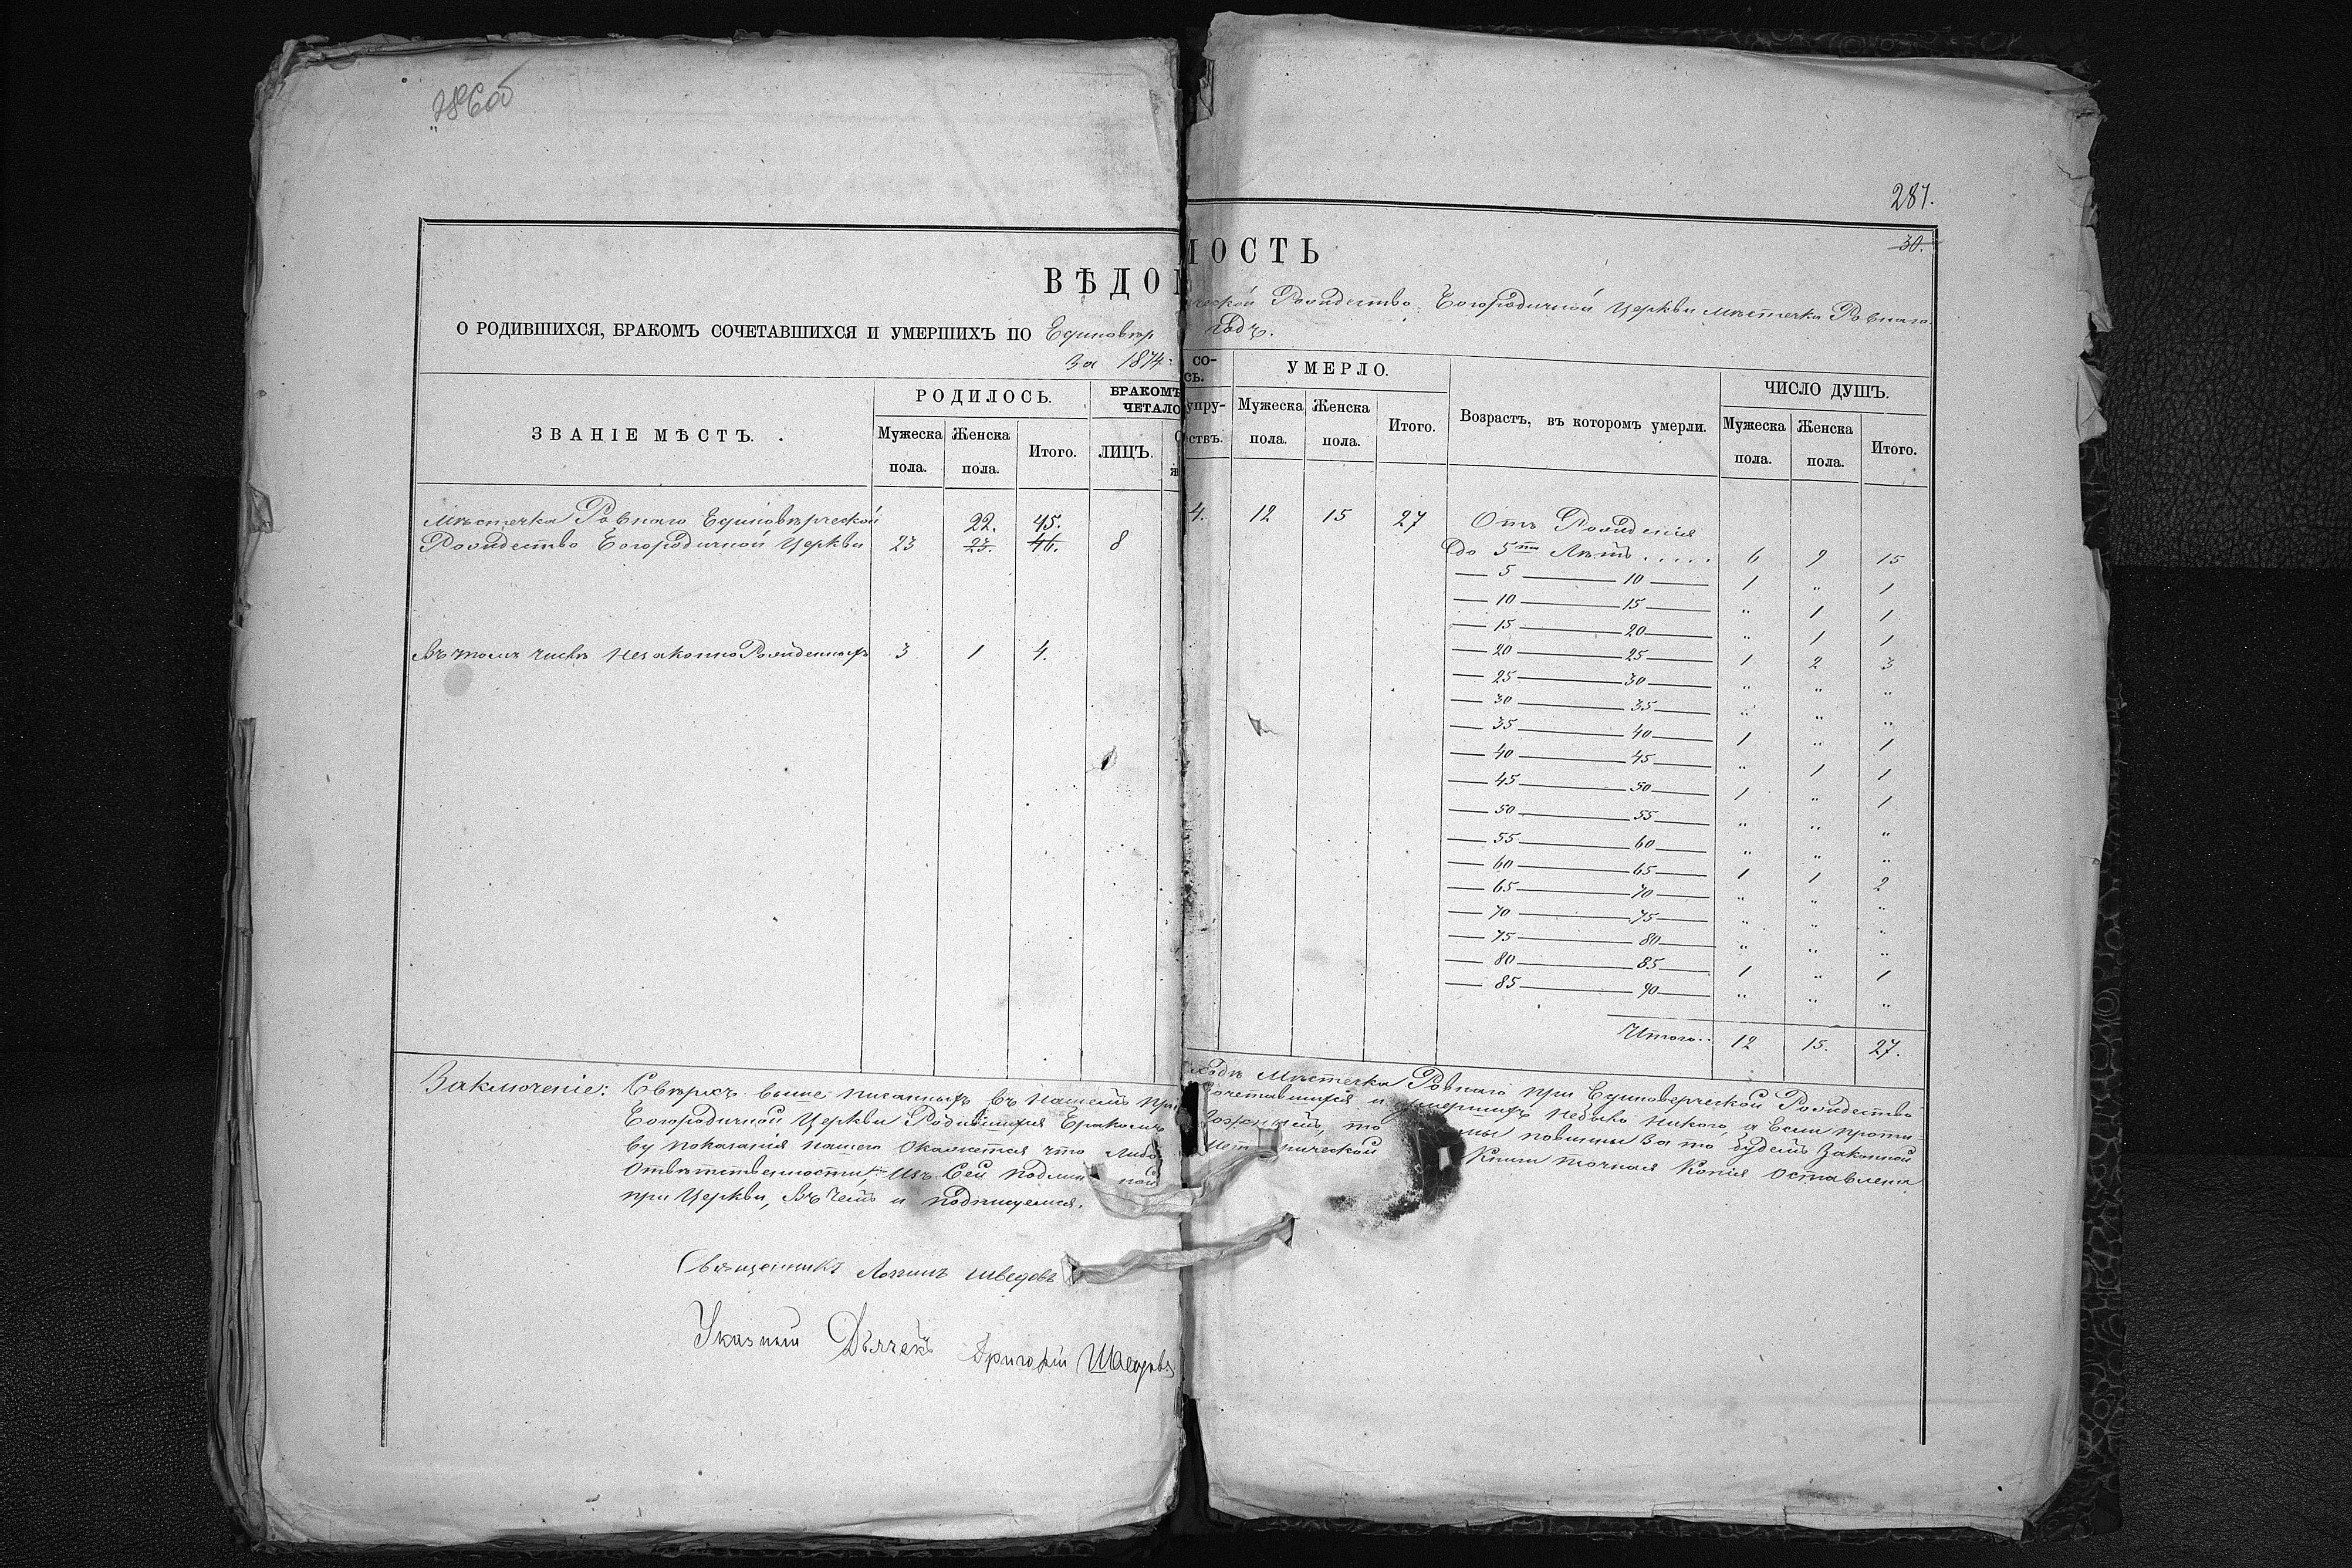 286об
281.
30.
ВѢДОМОСТЬ
О РОДИВШИХСЯ, БРАКОМЪ СОЧЕТАВШИХСЯ И УМЕРШИХЪ ПО Единовѣрческой Рождество-Богородичной Церкви мѣстечка Ровнаго
За 1874 годъ.
ЗВАНІЕ МѢСТЪ.
РОДИЛОСЬ.
БРАКОМЪ СО-
ЧЕТАЛОСЬ.
УМЕРЛО.
Возрастъ, въ которомъ умерли.
ЧИСЛО ДУШЪ.
Мужеска пола. Женска пола. Итого. ЛИЦЪ. Мужеска пола. Женска пола. Итого. Мужеска пола. Женска пола. Итого.
Мѣстечка Ровнаго Единовѣрческой 22. 45.
Рождество Богородичной Церкви 23 23. 46. 8 4. 12 15 27
Отъ Рожденія
до 5ти Лѣтъ..... 6 9 15
— 5 — 10 — 1 " 1
— 10 — 15 — " 1 1
— 15 — 20 — " 1 1
— 20 — 25 — 1 2 3
— 25 — 30 — " " "
— 30 — 35 — " " "
— 35 — 40 — 1 " 1
— 40 — 45 — " 1 1
— 45 — 50 — 1 " 1
— 50 — 55 — " " "
— 55 — 60 — " " "
— 60 — 65 — 1 1 2
— 65 — 70 — " " "
— 70 — 75 — " " "
— 75 — 80 — " " "
— 80 — 85 — 1 " 1
— 85 — 90 — " " "
Въ томъ числѣ незаконно Рожденныхъ 3 1 4.
Итого.. 12 15. 27.
Заключеніе: Сверхъ выше писанныхъ въ нашемъ приходѣ Мѣстечка Ровнаго при Единоверческой Рождество
Богородичной Церкви Родившихся Бракомъ Сочетавшихся и умершихъ небыло никого, а Если проти-
ву показанія нашего Окажется что либо то мы повинны за то будемъ Законной
Отвѣтственности, Изъ Сей подлинной Метрической Книги точная Копія Оставлена
при Церкви, въ чемъ и подпишемся.
Священникъ Логинъ Шведовъ
Указный Дьячекъ Григорій Шведовъ